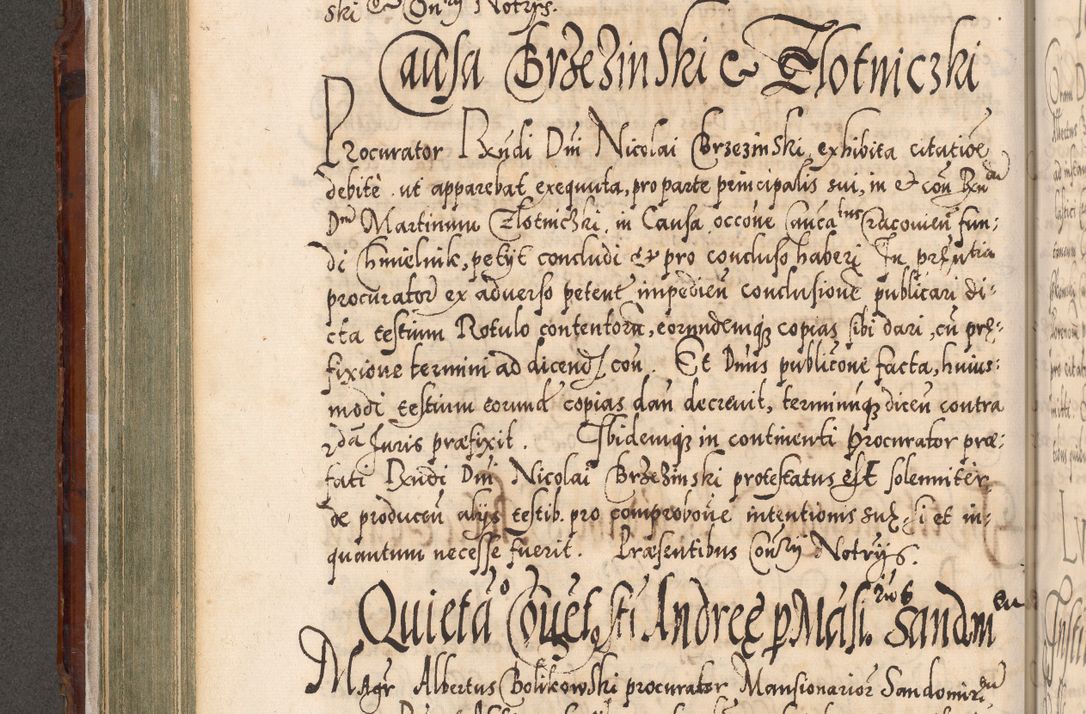 ski & Con̅ry Notrys.
Causa Brzezinski & Zlotniczki
Procurator Rxn̅di Dn̅i Nicolai Brzezinski, exhibita citatio̅e
debite ut apparebat exequuta, pro parte principalis sui, in & con̅ Rxn̅dum
Dnum Martinum Zlotniczki in Causa occo̅ne
di Chmielnik, petyt concludi & pro concluso haberi In pr̅sentia
procurator̅ ex adverso petent̅ impedien̅ conclusione̅ publicari di=
cta testium Rotulo contentor̅u, eorundemq̨ copias sibi dari, cu̅ prę=
fixione termini ad dicend̅ con̅. Et Dnus publico̅ne facta, huius=
modi testium eorund̅ copias dan̅ decrevit, terminu̅q̨ dicen̅ contra
2da Iuris præfixit. Ibidemq̨ in continenti Procurator præ=
fati Rxn̅di Dn̅i Nicolai Brzezinski protestatus est solenniter
de producen̅ alys testib. pro comprobo̅ne intentionis suæ, si et in=
quantum necesse fuerit. Præsentibus Con̅ry Notrys.
Quieta̅o Andreę p Ma̅si.rios Sandomien
Magr Albertus Bolikowski procurator Mansionarior̅ Sandomir̅